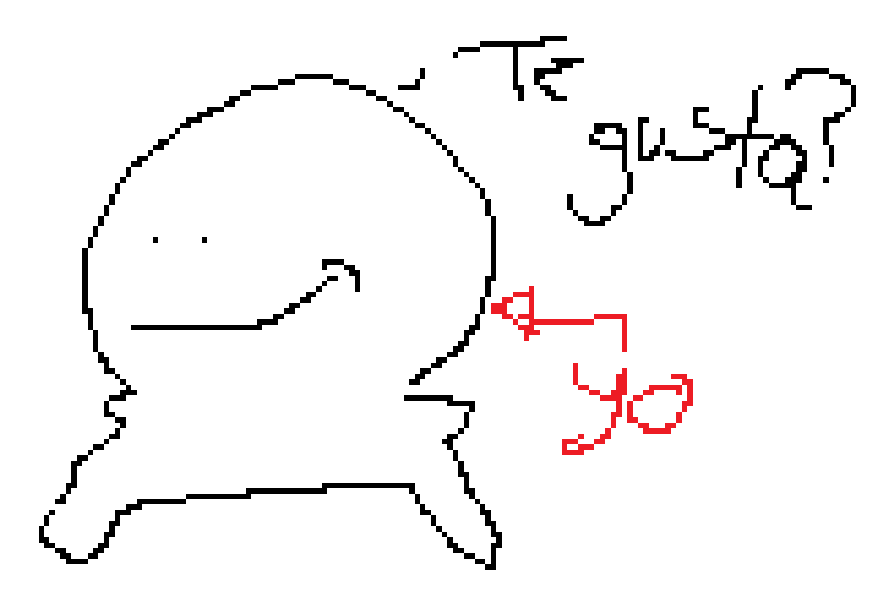 Te
gusta?
yo